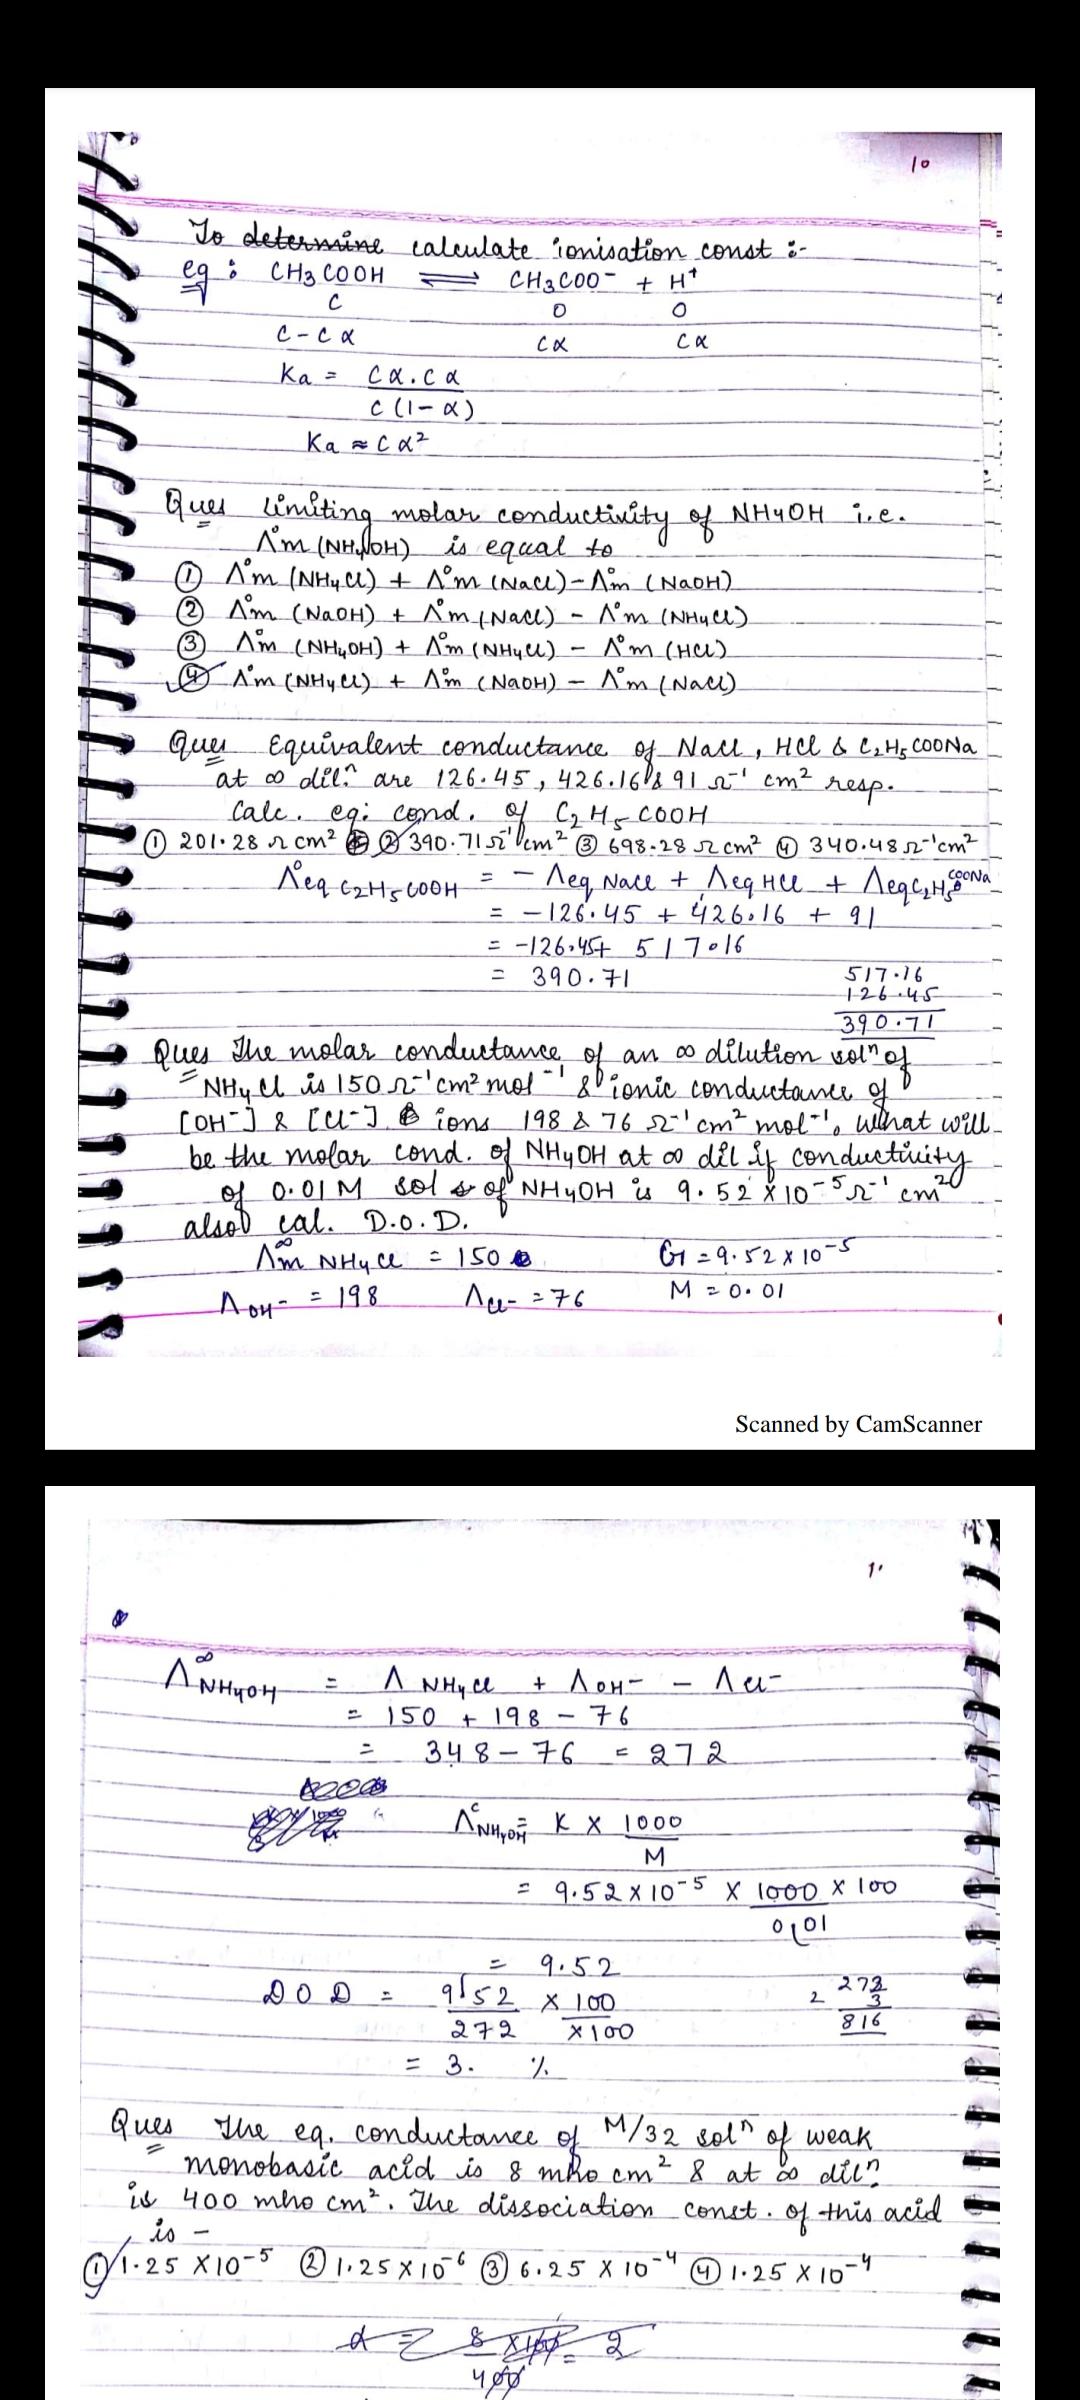 10
To determine calculate ionisation const :-
eg : CH3COOH ⇌ CH3COO⁻ + H⁺
C O O
C-Cα Cα Cα
Ka = Cα.Cα
C(1-α)
Ka ≈ Cα²
Ques limiting molar conductivity of NH4OH i.e.
Λ°m (NH4OH) is equal to
① Λ°m (NH4Cl) + Λ°m (NaCl) - Λ°m (NaOH)
② Λ°m (NaOH) + Λ°m (NaCl) - Λ°m (NH4Cl)
③ Λ°m (NH4OH) + Λ°m (NH4Cl) - Λ°m (HCl)
④ Λ°m (NH4Cl) + Λ°m (NaOH) - Λ°m (NaCl)
Ques Equivalent conductance of NaCl, HCl & C2H5COONa
at ∞ dilⁿ. are 126.45, 426.16 & 91 Ω⁻¹ cm² resp.
Calc. eq: cond. of C2H5COOH
① 201.28 Ω cm² ② 390.71 Ω⁻¹ cm² ③ 698.28 Ω cm² ④ 340.48 Ω⁻¹cm²
Λ°eq C2H5COOH = - Λeq NaCl + Λeq HCl + Λeq C2H5COONa
= -126.45 + 426.16 + 91
= -126.45 + 517.16
= 390.71
517.16
126.45
390.71
Ques The molar conductance of an ∞ dilution solⁿ of
NH4Cl is 150 Ω⁻¹cm² mol⁻¹ & ionic conductance of
[OH⁻] & [Cl⁻] ions 198 & 76 Ω⁻¹cm² mol⁻¹. What will
be the molar cond. of NH4OH at ∞ dil if conductivity
of 0.01 M sol of NH4OH is 9.52 × 10⁻⁵ Ω⁻¹ cm²
also cal. D.O.D.
Λ∞m NH4Cl = 150 G = 9.52 × 10⁻⁵
ΛOH⁻ = 198 ΛCl⁻ = 76 M = 0.01
Scanned by CamScanner
Λ∞NH4OH = Λ NH4Cl + ΛOH⁻ - ΛCl⁻
= 150 + 198 - 76
= 348 - 76 = 272
ΛᶜNH4OH = K × 1000
M
= 9.52 × 10⁻⁵ × 1000 × 100
0.01
= 9.52
DOD = 952 × 100
272 × 100
272
2 3
816
= 3. %
Ques The eq. conductance of M/32 solⁿ of weak
monobasic acid is 8 mho cm² & at ∞ dilⁿ.
is 400 mho cm². The dissociation const. of this acid
is -
① 1.25 × 10⁻⁵ ② 1.25 × 10⁻⁶ ③ 6.25 × 10⁻⁴ ④ 1.25 × 10⁻⁴
α = 8 × 100 = 2
400